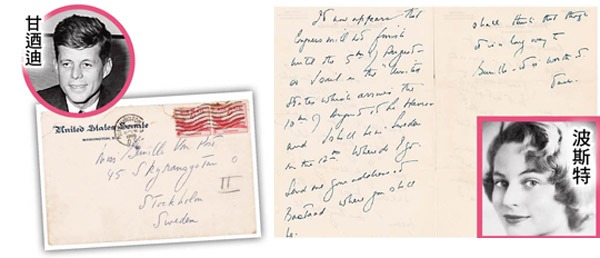 甘迺迪
United States Senate
WASHINGTON, D.C.
Miss Gunilla Von Post
45
Stockholm
Sweden
II
It now appears that
Congress will not finish
until the 5th of August-
so I sail on the "United
States which arrives the
10th of August at Le Havre
and I shall be in Sweden
on the 12th. Where do I go.
Send me your address at
Bastaad where you shall
be.
shall think that though
it is a long way to
Gunilla - it is worth it
Jack.
波斯特